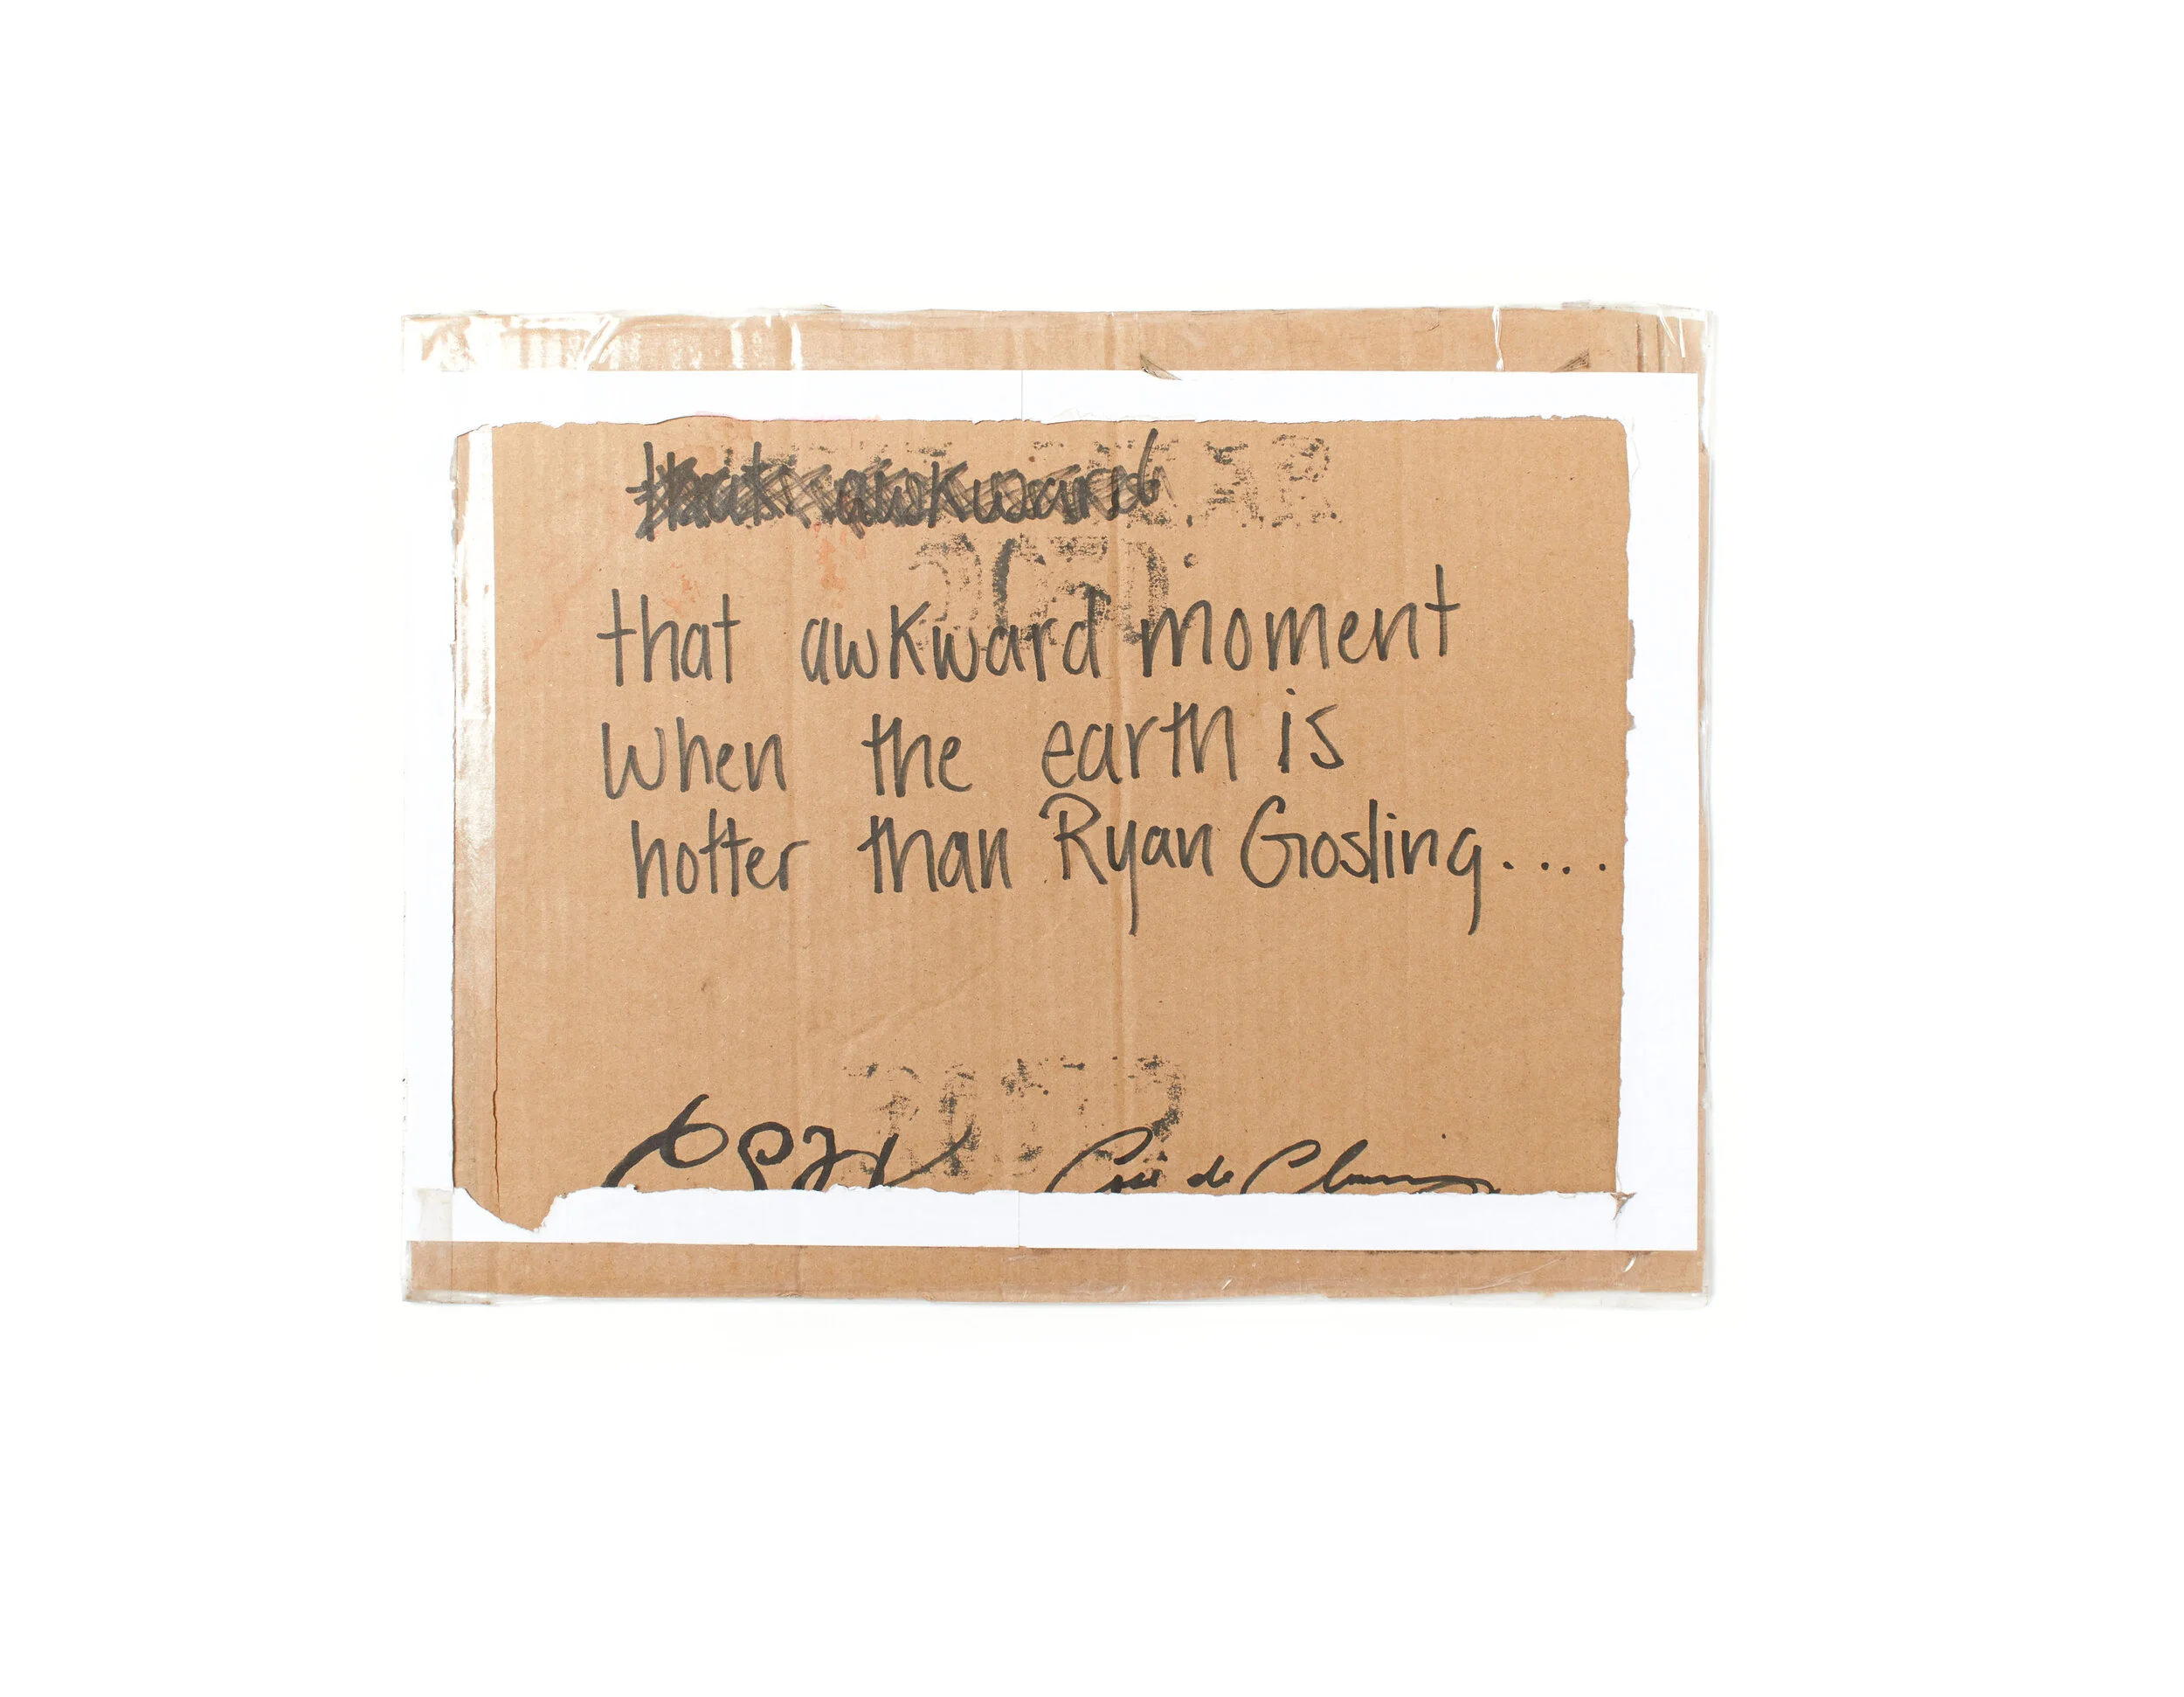 that awkward
that awkward moment
when the earth is
hotter than Ryan Gosling....